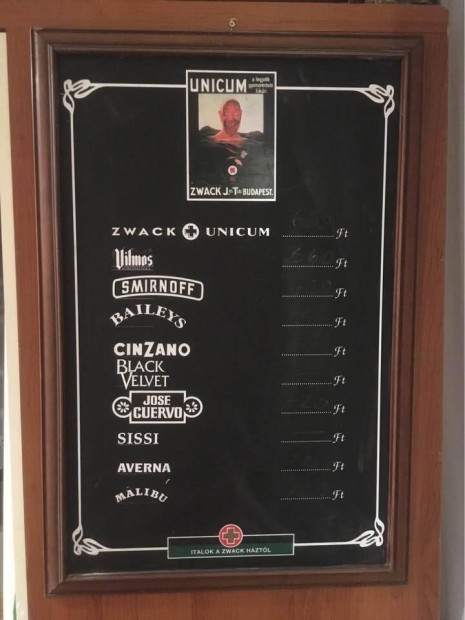 5
UNICUM
a legjobb
gyomorerősítő
likőr.
ZWACK J. ÉS T SAI BUDAPEST.
ZWACK UNICUM ..............Ft
Vilmos ..............Ft
SMIRNOFF ..............Ft
BAILEYS ..............Ft
CINZANO ..............Ft
BLACK
VELVET ..............Ft
JOSE
CUERVO ..............Ft
SISSI ..............Ft
AVERNA ..............Ft
MALIBU ..............Ft
ITALOK A ZWACK HÁZTÓL